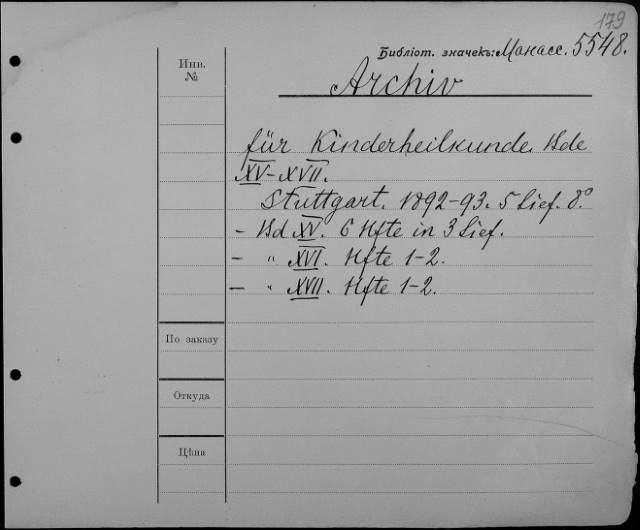 179
Библіот. значекъ: Манасс. 5548.
Инв.
№
Archiv
für Kinderheilkunde. Bde
XV-XVII.
Stuttgart. 1892-93. 5 Lief. 8.°
- Bd XV. 6 Hfte in 3 Lief.
- " XVI. Hfte 1-2.
- " XVII. Hfte 1-2.
По заказу
Откуда
Цѣна